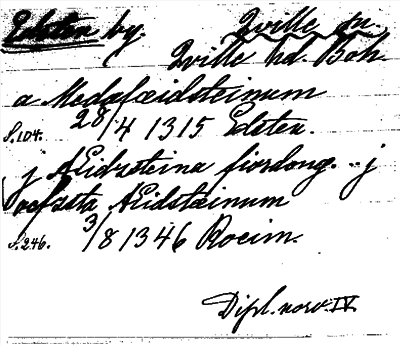 Edsten by. Qville sn.
Qville hd. Boh.
a Medafæidsteinum
S.104. 28/4 1315 Edsten.
j Æidzsteina fiordong. - j
væfasta Æidstæinum
S.246. 3/8 1346
Dipl. norv. IV.